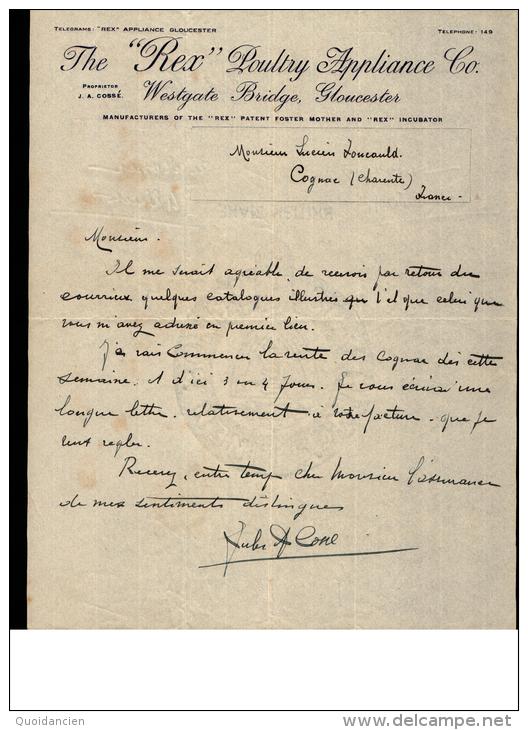 TELEGRAMS: "REX" APPLIANCE GLOUCESTER
TELEPHONE: 149
The "Rex" Poultry Appliance Co.
PROPRIETOR
J. A. COSSÉ.
Westgate Bridge, Gloucester
MANUFACTURERS OF THE "REX" PATENT FOSTER MOTHER AND "REX" INCUBATOR
Monsieur Lucien Foucauld.
Cognac (Charente)
France -
Monsieur.
Il me serait agréable, de recevoir par retour du
courrier quelques catalogues illustrés tel que celui que
vous m'avez adressé en premier lieu.
Je vais commencer la vente des Cognac dès cette
semaine. A d'ici 3 ou 4 Jours. Je vous écrirai une
longue lettre, relativement à votre facture - que je
veux regler.
Recevez, entre temps cher Monsieur l'assurance
de mes sentiments distingués
Jules A Cossé
Quoidancien
delcampe.net